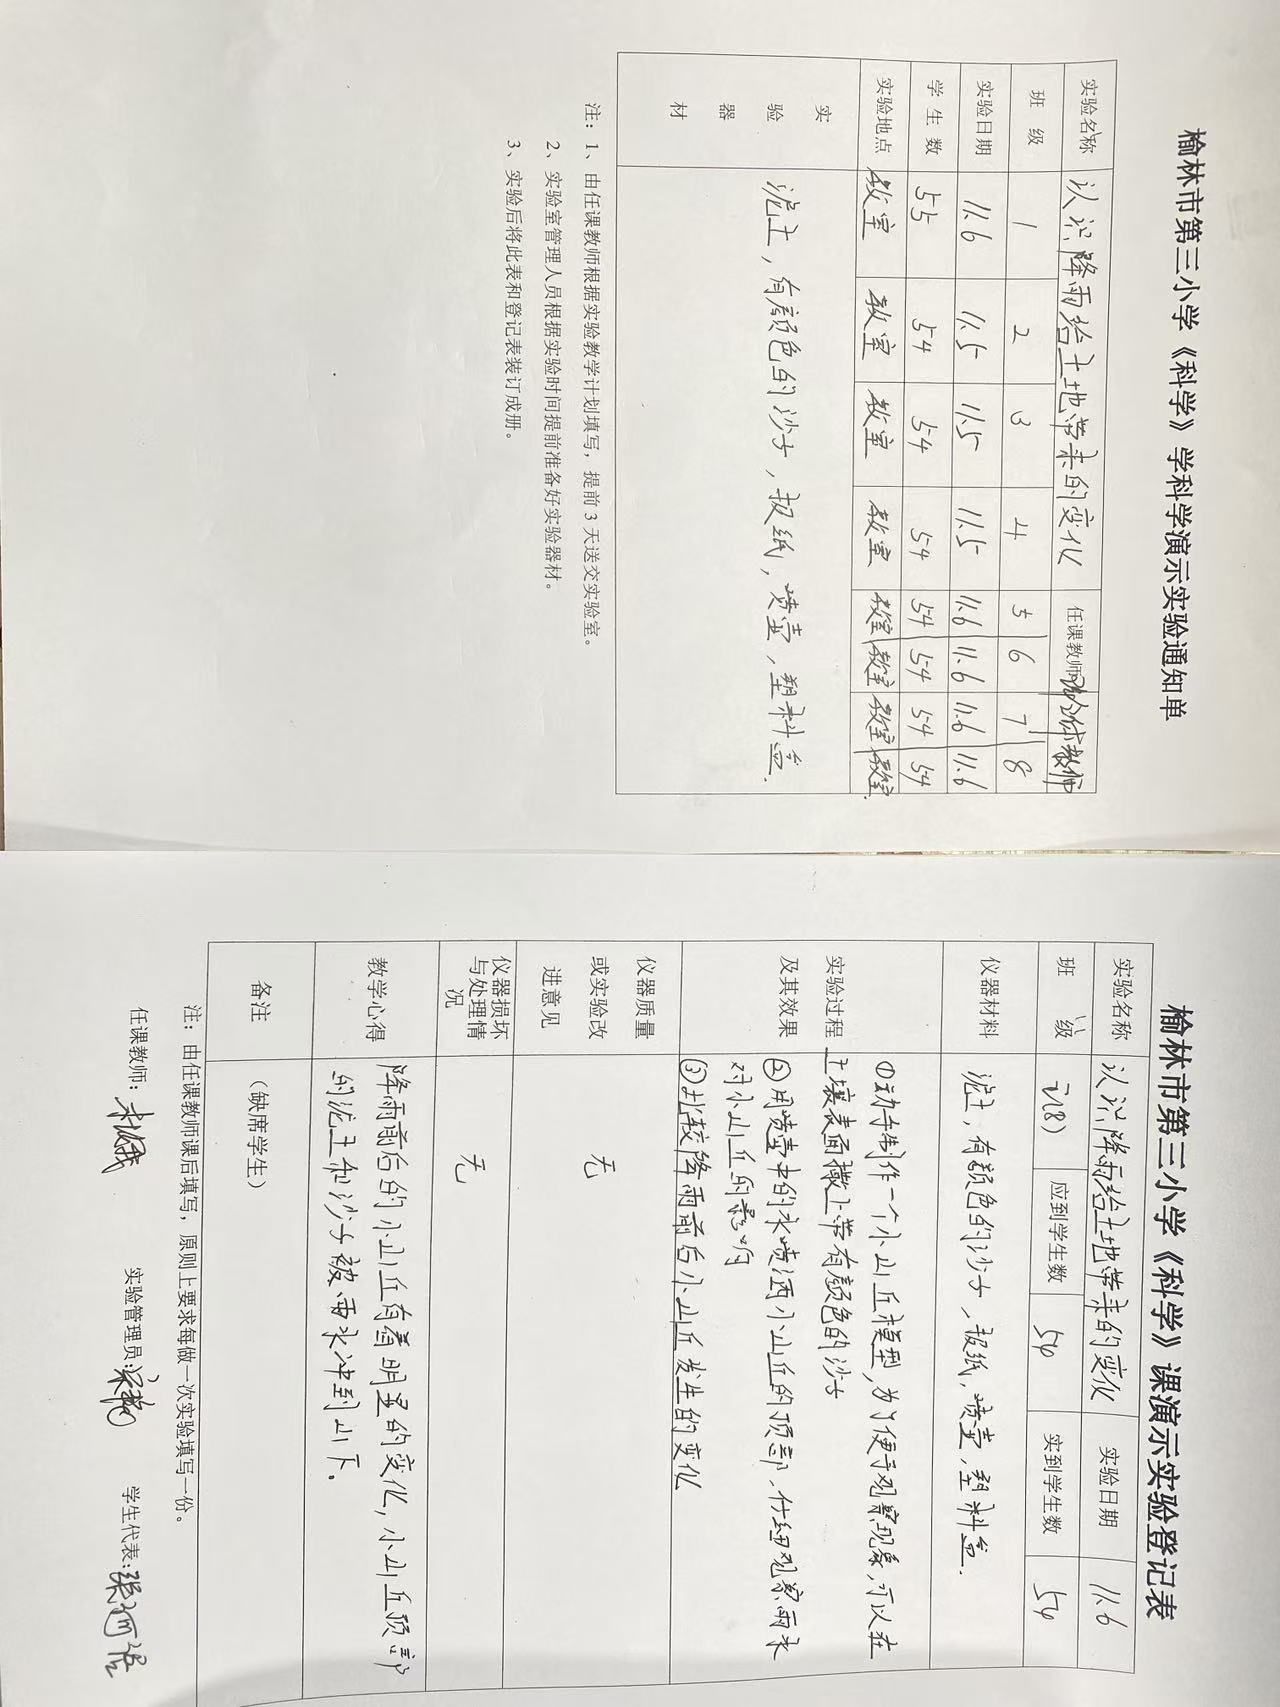 榆林市第三小学《科学》学科学演示实验通知单
实验名称 认识降雨给土地带来的变化 任课教师
班 级 1 2 3 4 5 6 7 8
实验日期 11.6 11.5 11.5 11.5 11.6 11.6 11.6 11.6
学 生 数 55 54 54 54 54 54 54 54
实验地点 教室 教室 教室 教室 教室 教室 教室 教室
实验器材 泥土,有颜色的沙子,报纸,喷壶,塑料盒.
注:1、由任课教师根据实验教学计划填写,提前3天送交实验室。
2、实验室管理人员根据实验时间提前准备好实验器材。
3、实验后将此表和登记表装订成册。
榆林市第三小学《科学》课演示实验登记表
实验名称 认识降雨给土地带来的变化 实验日期 11.6
班 级 应到学生数 54 实到学生数 54
仪器材料 泥土,有颜色的沙子、报纸,喷壶,塑料盒.
实验过程
及其效果
①动手制作一个小山丘模型,为了便于观察现象,可以在
土壤表面撒上带有颜色的沙子
②用喷壶中的水喷洒小山丘的顶部、仔细观察雨水
对小山丘的影响
③比较降雨前后小山丘发生的变化
仪器质量
或实验改
进意见
无
仪器损坏
与处理情
况
无
教学心得
降雨前后的小山丘有着明显的变化,小山丘顶部
的泥土和沙子被雨水冲到山下。
备注 (缺席学生)
注:由任课教师课后填写,原则上要求每做一次实验填写一份。
任课教师: 实验管理员: 学生代表: